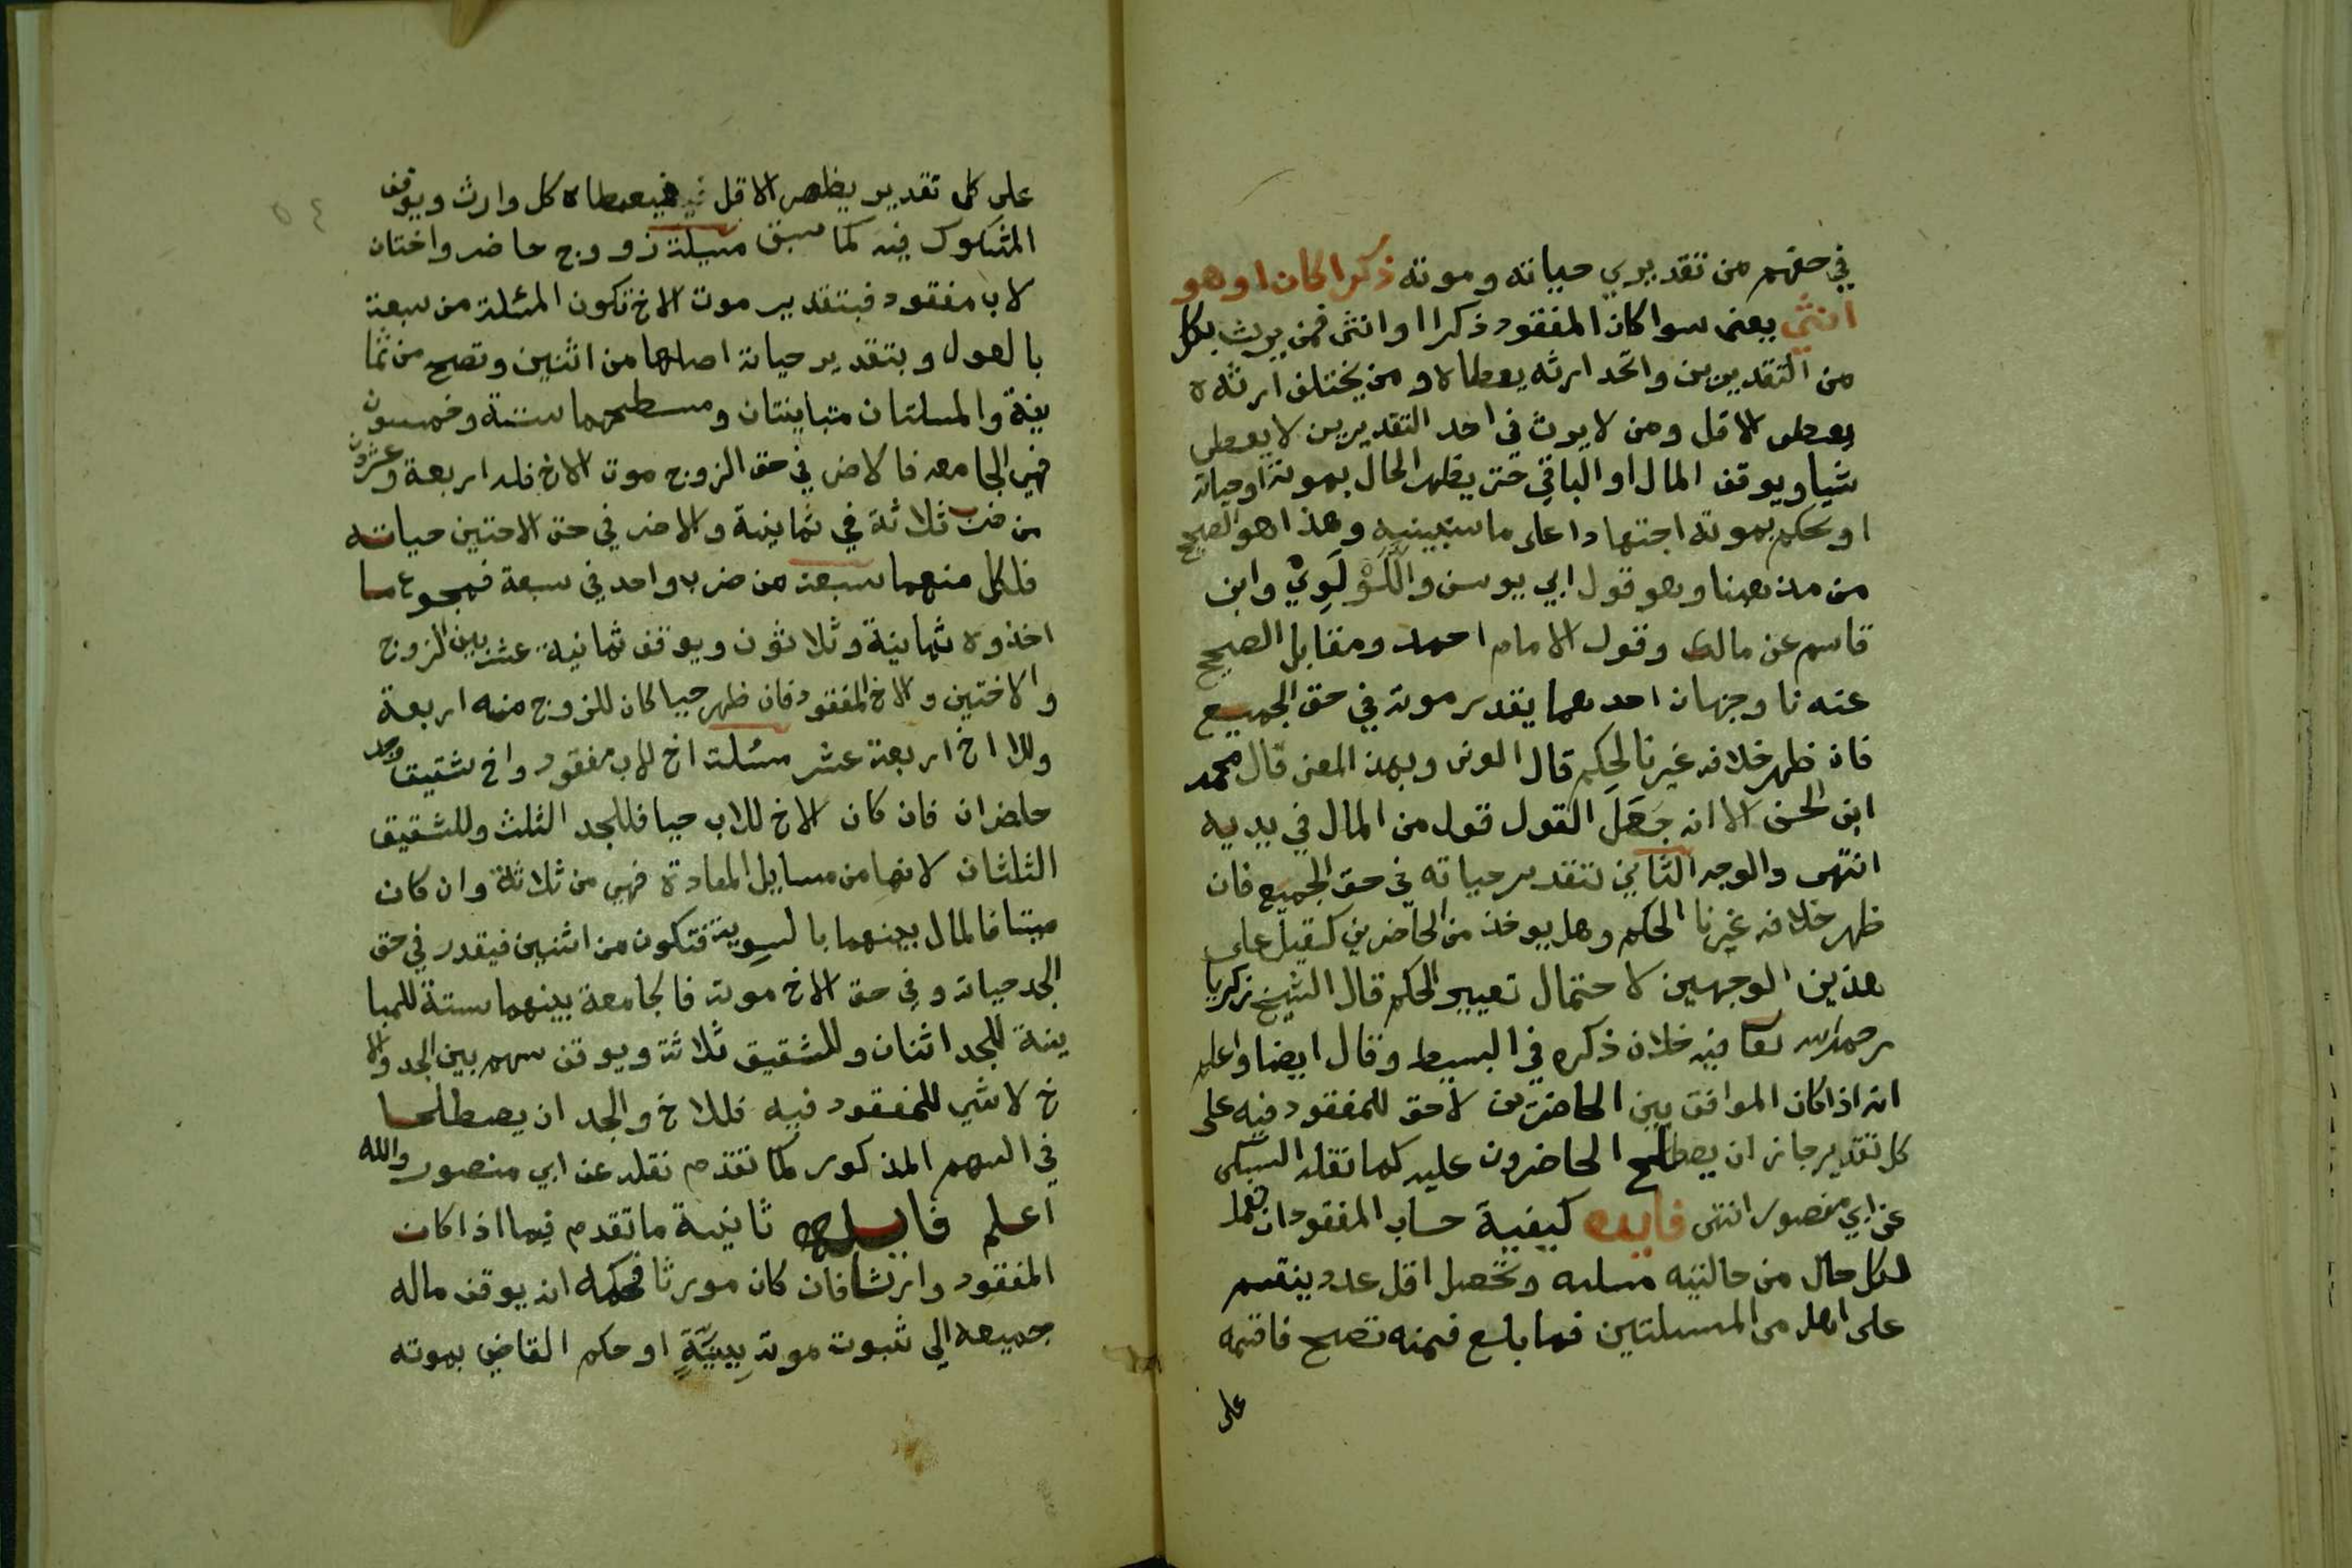 في حقهم من تقديري حياته وموته ذكرا كان او هو
انثي يعنى سوا كان المفقود ذكرا او انثى فمن يرث بكل
من التقديرين واتحد ارثه يعطاه ومن يختلف ارثه
يعطى الاقل ومن لا يرث في احد التقديرين لا يعطى
شيا ويوقف المال او الباقي حتى يظهر الحال بموته او حياته
او يحكم بموته اجتهادا على ما سنبينه وهذا هو الصحيح
من مذهبنا وهو قول ابي يوسف واللؤلوي وابن
قاسم عن مالك وقول الامام احمد ومقابل الصحيح
عندنا وجهان احدهما يقدر موته في حق الجميع
فان ظهر خلافه غيرنا الحكم قال الونى وبهذا المعنى قال محمد
ابن الحسن الا انه جعل القول قول من المال في يديه
انتهى والوجه الثاني تقدير حياته في حق الجميع فان
ظهر خلافه غيرنا الحكم وهل يوخذ من الحاضرين كفيل على
هذين الوجهين لاحتمال تغيير الحكم قال الشيخ زكريا
رحمه الله تعا فيه خلاف ذكره في البسيط وقال ايضا واعلم
انه اذا كان الموافق بين الحاضرين لا حق للمفقود فيه على
كل تقدير جاز ان يصطلح الحاضرون عليه كما نقله السبكى
عن ابي منصور انتهى فايده كيفية حساب المفقود ان تعمل
لكل حال من حالتيه مسله وتحصل اقل عدد ينقسم
على اهل من المسلتين فما بلغ فمنه تصح فاقسمه
على
على كل تقدير يظهر الاقل فيعطاه كل وارث ويوقف
المشكوك فيه كما سبق مسيلة زووج حاضر واختان
لاب مفقود فبتقدير موت الاخ تكون المئلة من سبعة
بالعول وبتقدير حياته اصلها من اثنين وتصح من ثما
نية والمسلتان متباينتان ومسطحهما ستة وخمسون
فهي الجامعه فالاضر في حق الزوج موت الاخ فله اربعة وعشرون
من ضرب ثلاثة في ثمانية والاضر في حق الاختين حياته
فلكل منهما سبعة من ضرب واحد في سبعة فمجوع ما
اخذوه ثمانية وثلاثون ويوقف ثمانية عشر بين الزوج
والاختين والاخ المفقود فان ظهر حيا كان للزوج منه اربعة
وللا اخ اربعة عشر مسئلة اخ لاب مفقود واخ شقيق وجد
حاضران فان كان الاخ للاب حيا فللجد الثلث وللشقيق
الثلثان لانها من مسايل المعادة فهي من ثلاثة وان كان
ميتا فالمال بينهما بالسوية فتكون من اثنين فيقدر في حق
الجد حياته وفي حق الاخ موته فالجامعة بينهما ستة للمبا
ينة للجد اثنان وللشقيق ثلاثة ويوقف سهم بين الجد والا
خ لا شي للمفقود فيه فللاخ والجد ان يصطلحا
في السهم المذكور كما تقدم نقله عن ابي منصور والله
اعلم فايده ثانية ما تقدم فيما اذا كان
المفقود وارثا فان كان مورثا فحكمه ان يوقف ماله
جميعه الي ثبوت موته ببينة او حكم القاضي بموته